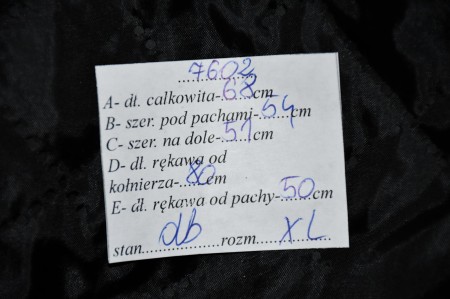 7602
A- dł. całkowita-68cm
B- szer. pod pachami-54cm
C- szer. na dole-51cm
D- dł. rękawa od
kołnierza-80cm
E- dł. rękawa od pachy-50cm
stan db rozm. XL